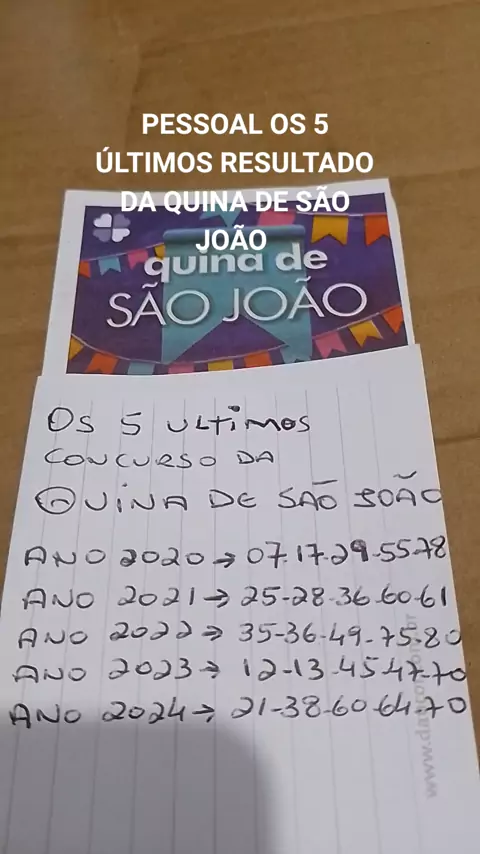 PESSOAL OS 5
ÚLTIMOS RESULTADO
DA QUINA DE SÃO
JOÃO
quina de
SÃO JOÃO
OS 5 ULTIMOS
CONCURSO DA
QUINA DE SÃO JOÃO
ANO 2020 → 07.17.29-55-78
ANO 2021 → 25-28-36-60-61
ANO 2022 → 35-36-49-75-80
ANO 2023 → 12-13-45-47-70
ANO 2024 → 21-38-60-64-70